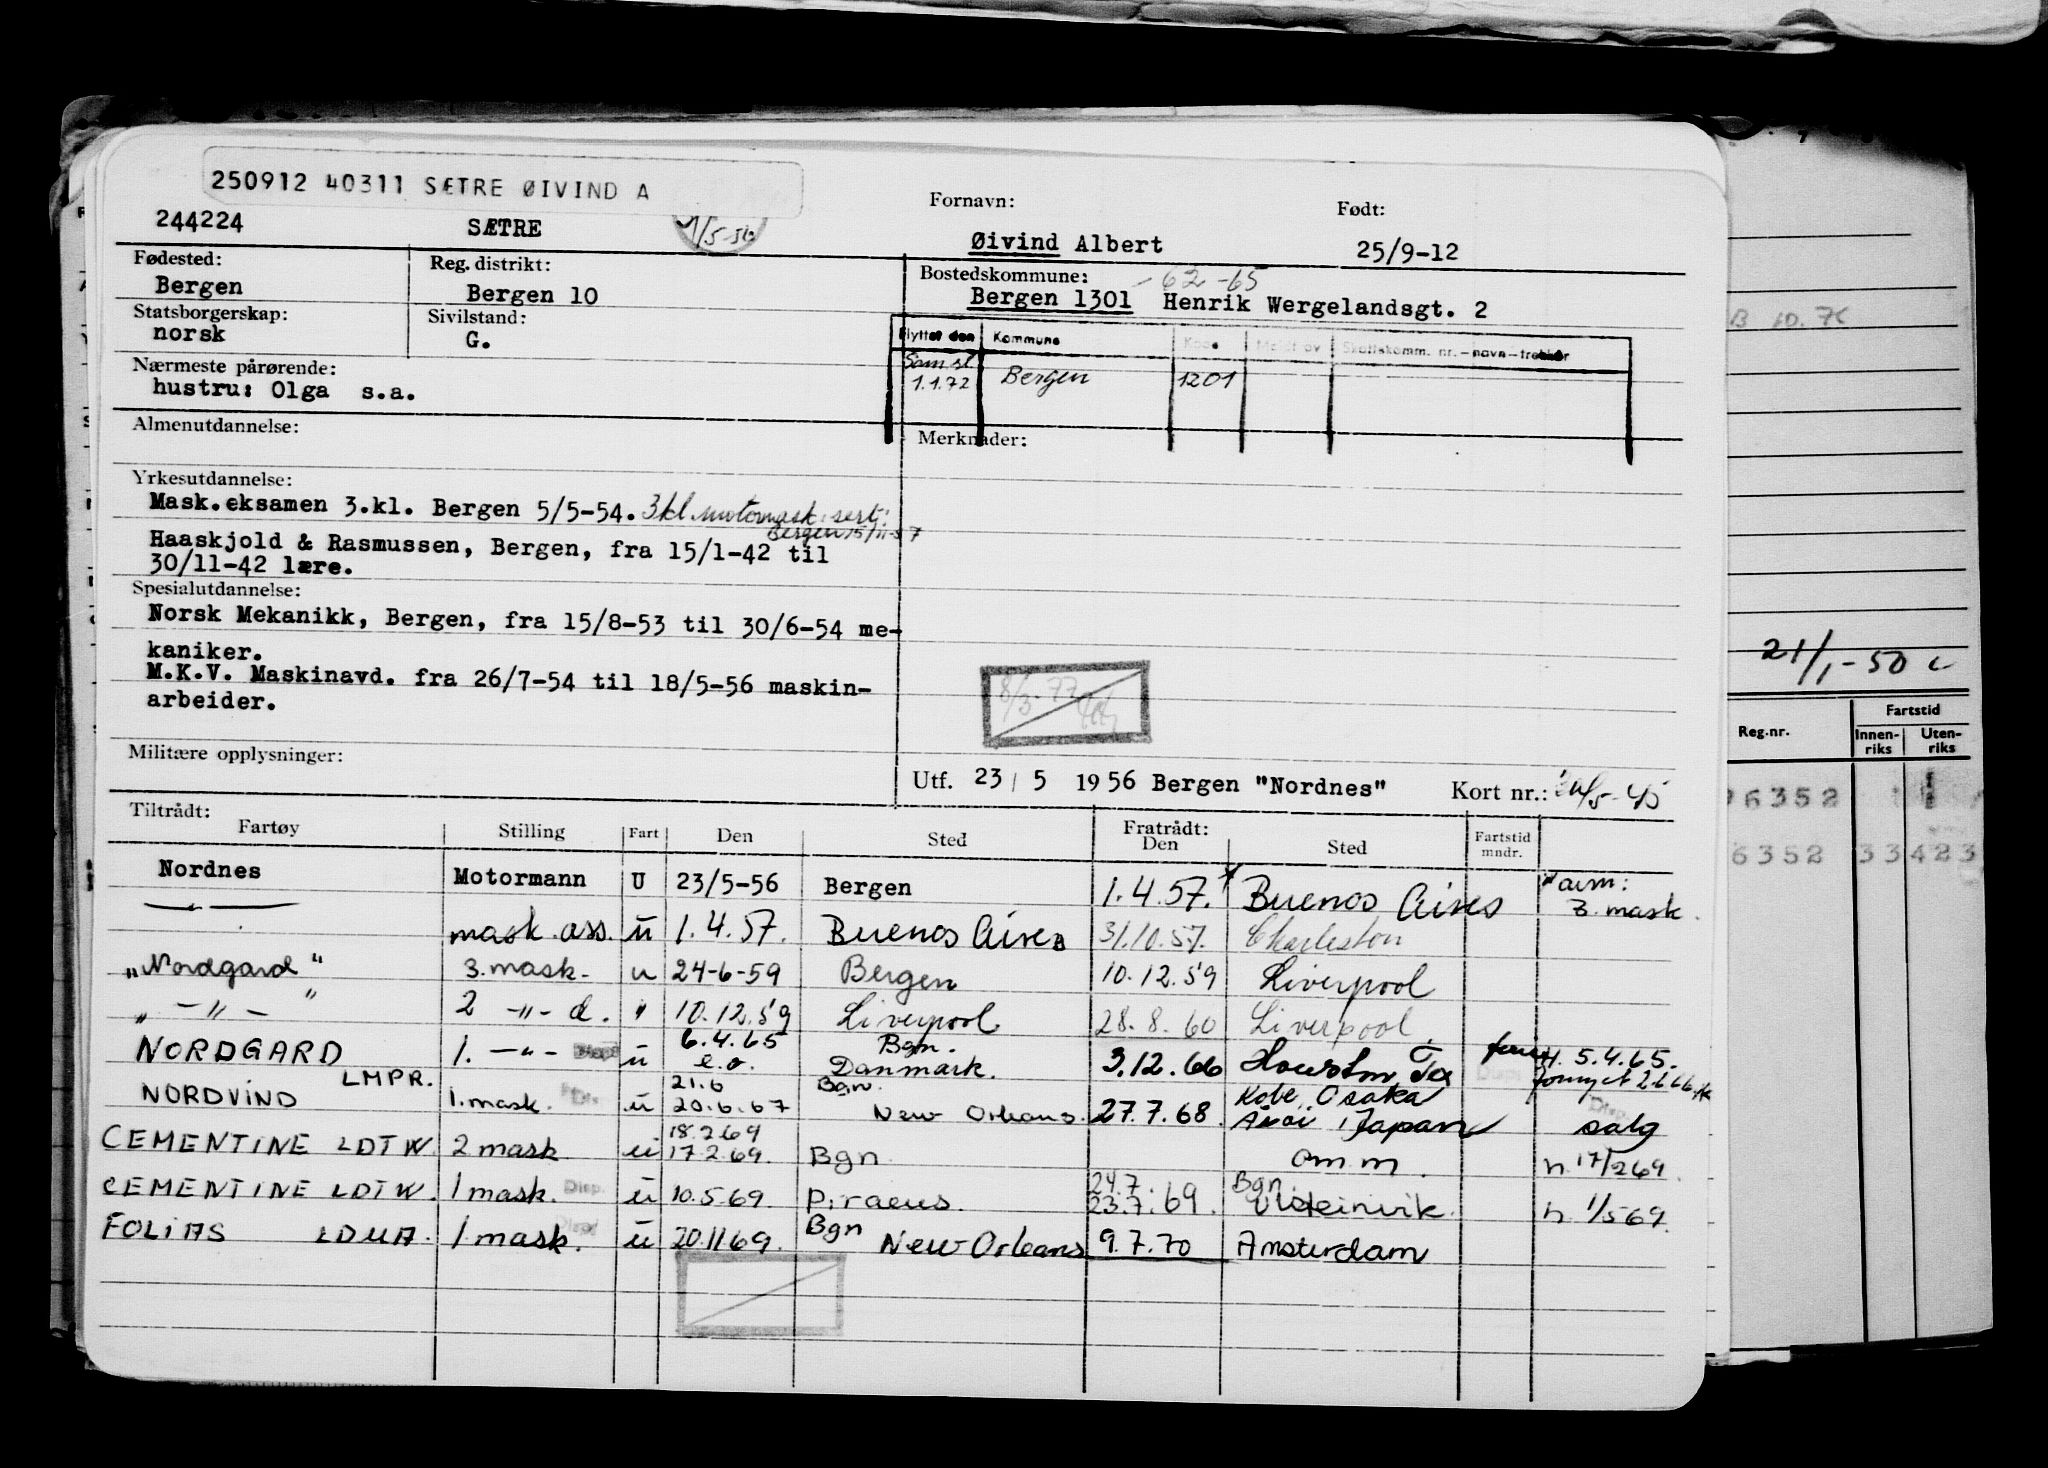 250912 40311 SÆTRE ØIVIND A
244224 SÆTRE 1/5-56
Fornavn: Født:
Øivind Albert 25/9-12
Fødested: Reg. distrikt: Bostedskommune: -62-65
Bergen Bergen 10 Bergen 1301 Henrik Wergelandsgt. 2
Statsborgerskap: Sivilstand:
norsk G.
Flyttet den Kommune Kode Meldt av Skattskomm. nr.-navn-trekker
Sam.sl.
1.1.72 Bergen 1201
Nærmeste pårørende:
hustru: Olga s.a.
Almenutdannelse: Merknader:
Yrkesutdannelse:
Mask.eksamen 3.kl. Bergen 5/5-54. 3kl. motormask. sert.
Bergen 15/11-57
Haaskjold & Rasmussen, Bergen, fra 15/1-42 til
30/11-42 lære.
Spesialutdannelse:
Norsk Mekanikk, Bergen, fra 15/8-53 til 30/6-54 me-
kaniker.
M.K.V. Maskinavd. fra 26/7-54 til 18/5-56 maskin-
arbeider.
8/3-77
Militære opplysninger:
Utf. 23/5 1956 Bergen "Nordnes" Kort nr.:
Tiltrådt: Fratrådt:
Fartøy Stilling Fart Den Sted Den Sted Fartstid mndr.
Nordnes Motormann U 23/5-56 Bergen 1.4.57. * Buenos Aires * avm: 3. mask.
— " — mask. ass. u 1.4.57. Buenos Aires 31.10.57. Charleston
"Nordgard" 3. mask. u 24-6-59 Bergen 10.12.59 Liverpool
" -"- " 2 -"- d. " 10.12.59 Liverpool 28.8.60 Liverpool
6.4.65 Bgn.
NORDGARD 1. -"- Disp u e.o. Danmark. 3.12.66 Houston Tx 5.4.65.
LMPR. 21.6 Bgn. Kobe, Osaka
NORDVIND 1. mask. Disp u 20.6.67 New Orleans. 27.7.68. Aioi, Japan Disp. salg
18.2.69
CEMENTINE LDTW. 2 mask u 17.2.69. Bgn omm. n. 17/2 69
24.7. Bgn.
CEMENTINE LDTW. 1 mask. Disp. u 10.5.69. Piraeus. 23.7.69. Ulsteinvik. n. 1/5 69.
Bgn
FOLIAS LDUA. 1 mask. Disp u 20.11 69. New Orleans 9.7.70 Amsterdam
B 10.
21/1-50
Reg.nr. Fartstid
Innen-riks Uten-riks
6352
6352 33423